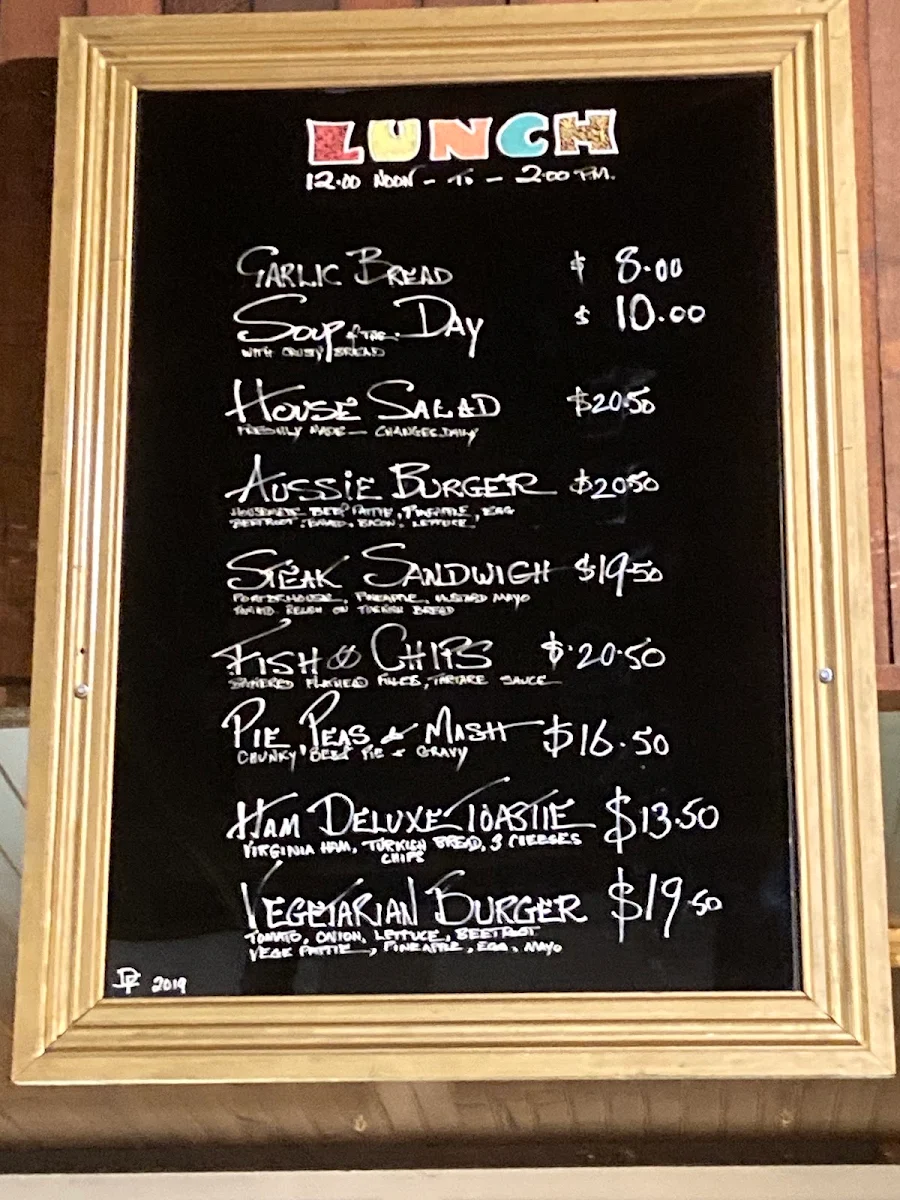 LUNCH
12.00 NOON - TO - 2.00 P.M.
GARLIC BREAD $ 8.00
SOUP OF THE DAY $ 10.00
WITH CRUSTY BREAD
HOUSE SALAD $20.50
FRESHLY MADE — CHANGES DAILY
AUSSIE BURGER $20.50
HOUSEMADE BEEF PATTIE, PINEAPPLE, EGG
BEETROOT, BACON, LETTUCE
STEAK SANDWICH $19.50
PORTERHOUSE, PINEAPPLE, MUSTARD MAYO
TOMATO RELISH ON TURKISH BREAD
FISH & CHIPS $20.50
BATTERED FLATHEAD FILLETS, TARTARE SAUCE
PIE PEAS & MASH $16.50
CHUNKY BEEF PIE & GRAVY
HAM DELUXE TOASTIE $13.50
VIRGINIA HAM, TURKISH BREAD, 3 CHEESES
CHIPS
VEGETARIAN BURGER $19.50
TOMATO, ONION, LETTUCE, BEETROOT
VEGE PATTIE, PINEAPPLE, EGG, MAYO
2019